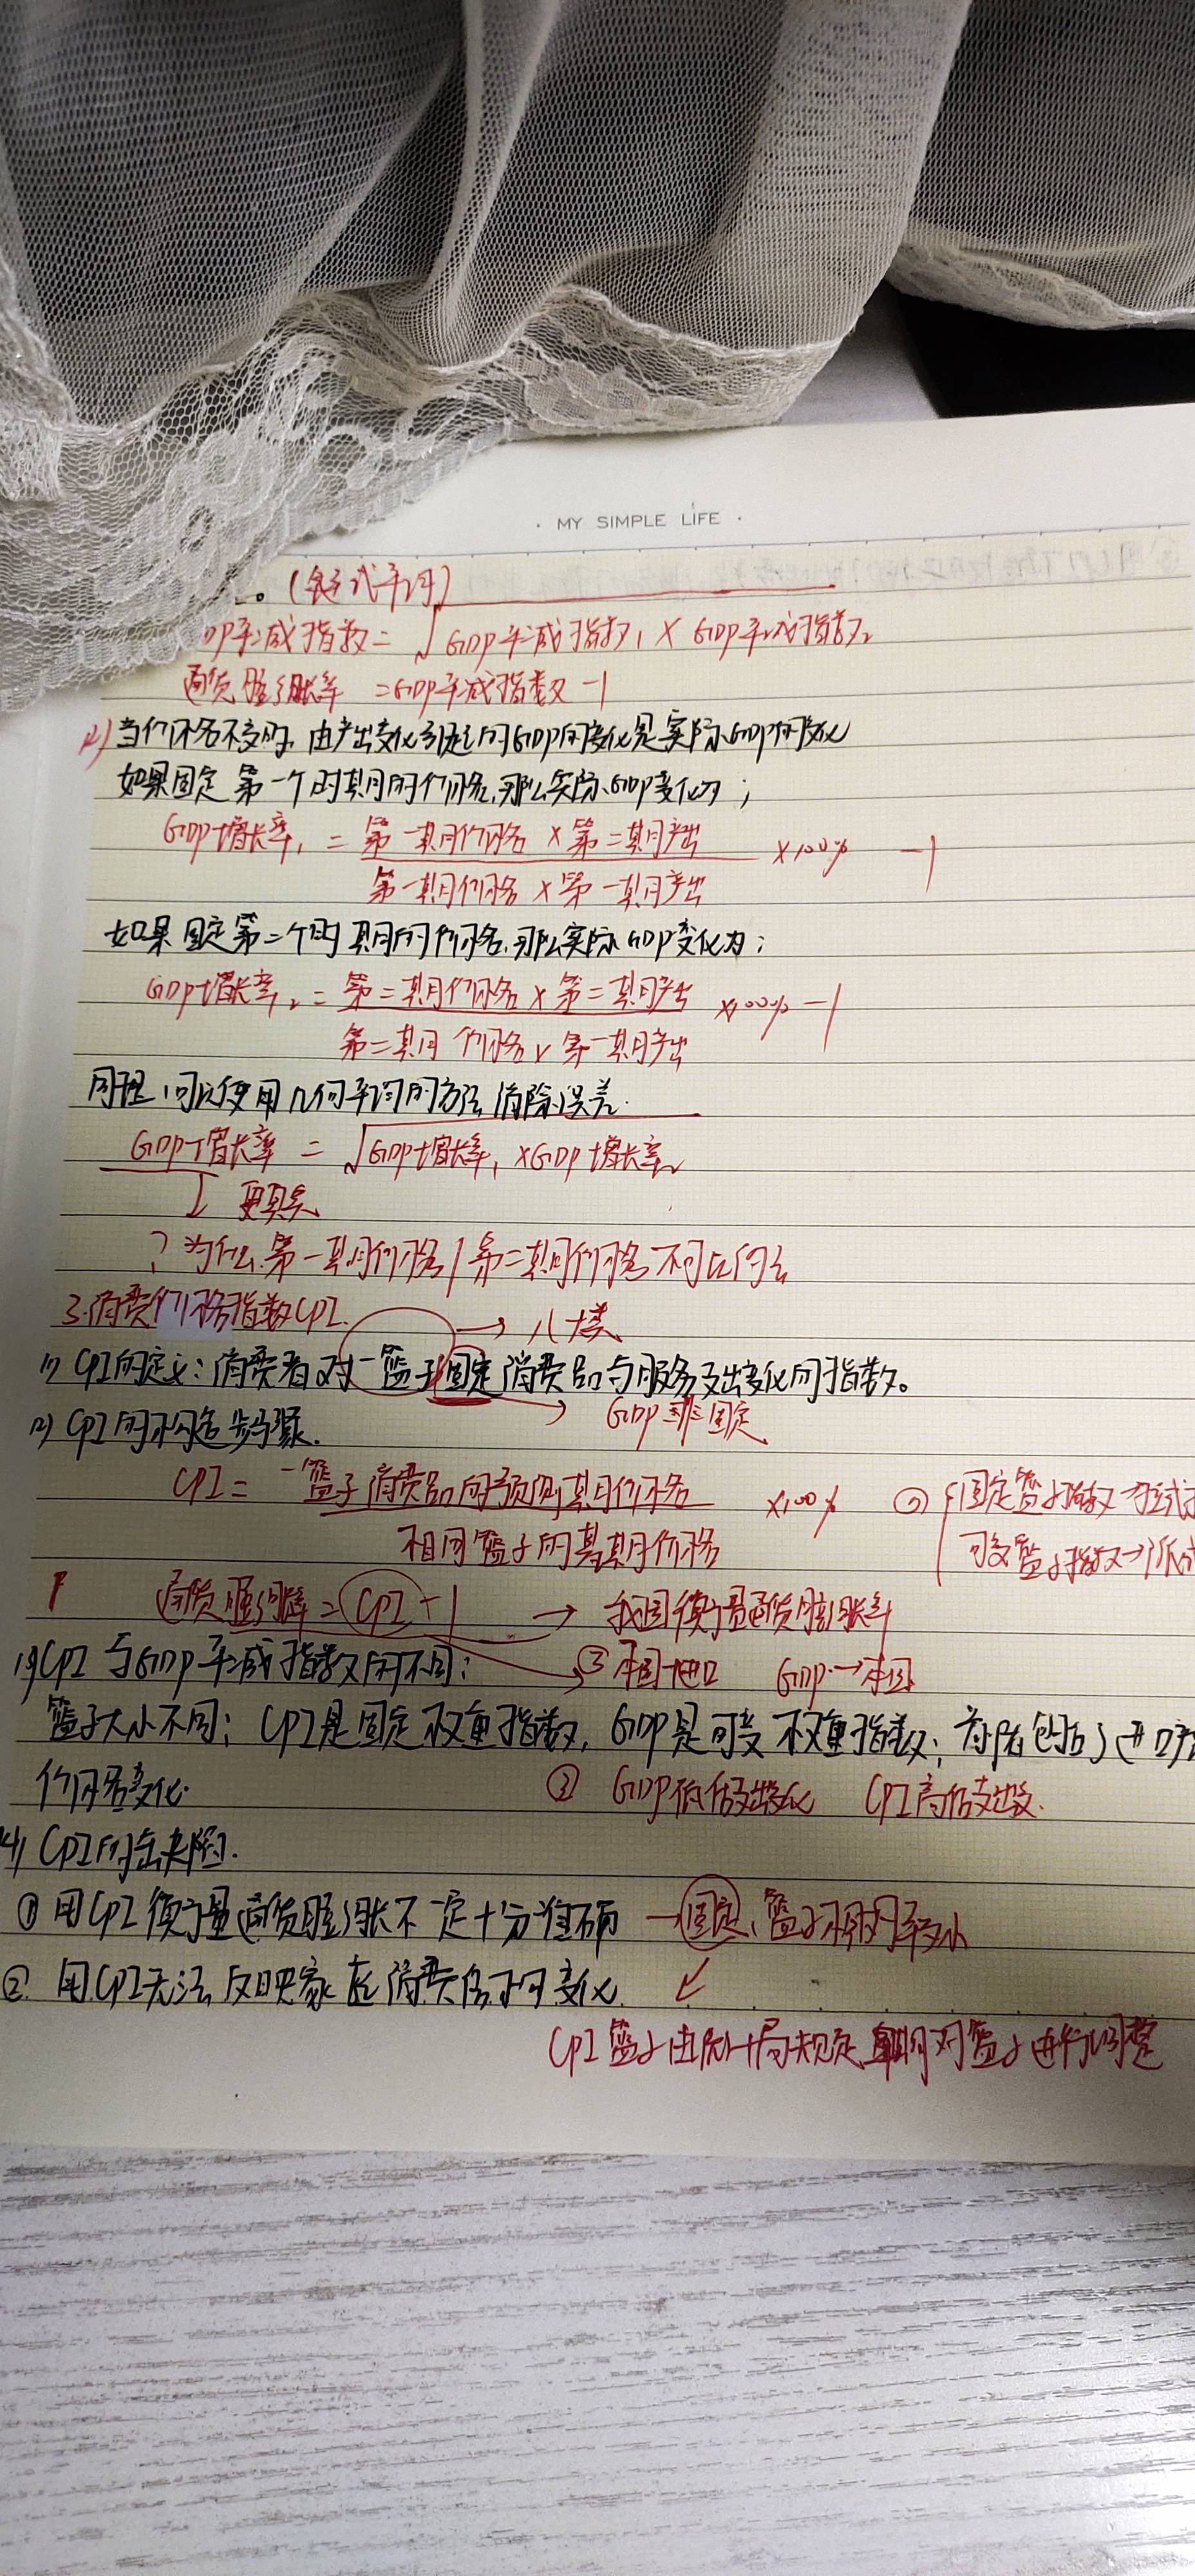 · MY SIMPLE LIFE ·
(链式平均)
DP平减指数 = √GDP平减指数₁ × GDP平减指数₂
通货膨胀率 = GDP平减指数 - 1
(2) 当价格不变时, 由产出变化引起的GDP的变化是实际GDP的变化
如果固定第一个时期的价格,那么实际GDP变化为;
GDP增长率₁ = 第一期价格 × 第二期产出 ×100% -1
第一期价格 × 第一期产出
如果固定第二个时期的价格,那么实际GDP变化为;
GDP增长率₂ = 第二期价格 × 第二期产出 ×100% -1
第二期价格 × 第一期产出
同理,可以使用几何平均的方法,消除误差.
GDP增长率 = √GDP增长率₁ ×GDP增长率₂
↓ 更真实
? 为什么第一期价格/第二期价格 不可比
3.消费价格指数CPI.
→ 八大类
(1) CPI的定义: 消费者对一篮子固定消费品与服务支出变化的指数。
→ GDP非固定
(2) CPI的构造步骤.
CPI = 一篮子消费品的预测期价格 ×100%
相同篮子的基期价格
① 固定篮子指数
可变篮子指数→
通货膨胀率 = CPI - 1 → 我国衡量通货膨胀率
(3) CPI与GDP平减指数的不同:
③ 本国+进口 GDP→本国
篮子大小不同; CPI是固定权重指数, GDP是可变权重指数; 包括了进口
价格变化.
② GDP低估支出变化 CPI高估支出
(4) CPI的缺陷.
① 用CPI衡量通货膨胀不一定十分准确 → 固定、篮子
② 用CPI无法反映家庭消费的变化.
↙
CPI篮子由统计局规定 对篮子进行调整